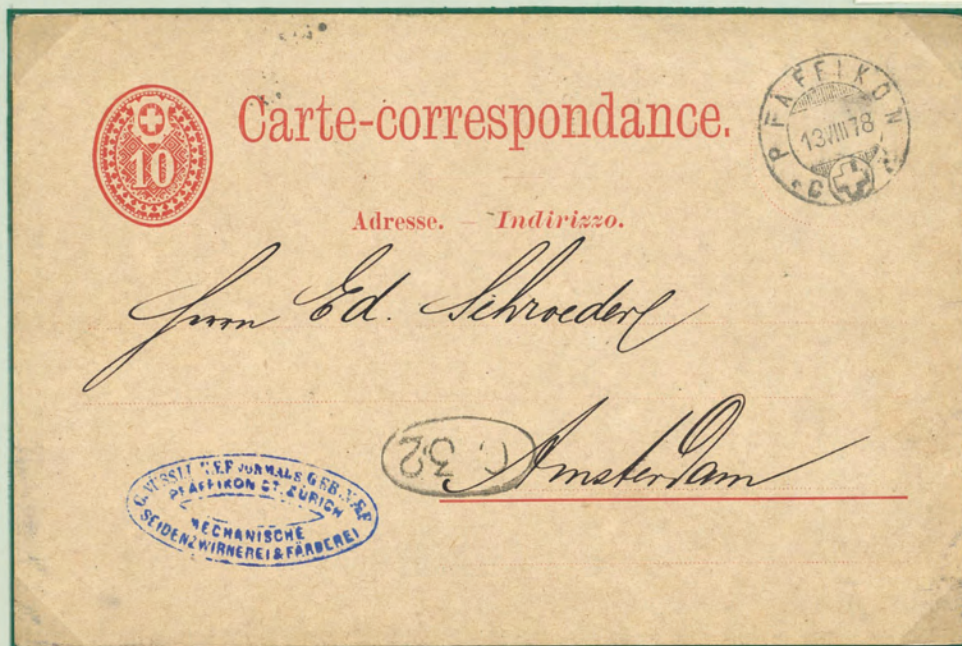 Carte-correspondance.
10
PFAFFIKON
13 VIII 78
Adresse. — Indirizzo.
Herrn Ed. Schroeder
C 32
Amsterdam
NÆF VORMALS GEB. NÆF
PFAFFIKON CT. ZURICH
MECHANISCHE
SEIDENZWIRNEREI & FÄRBEREI